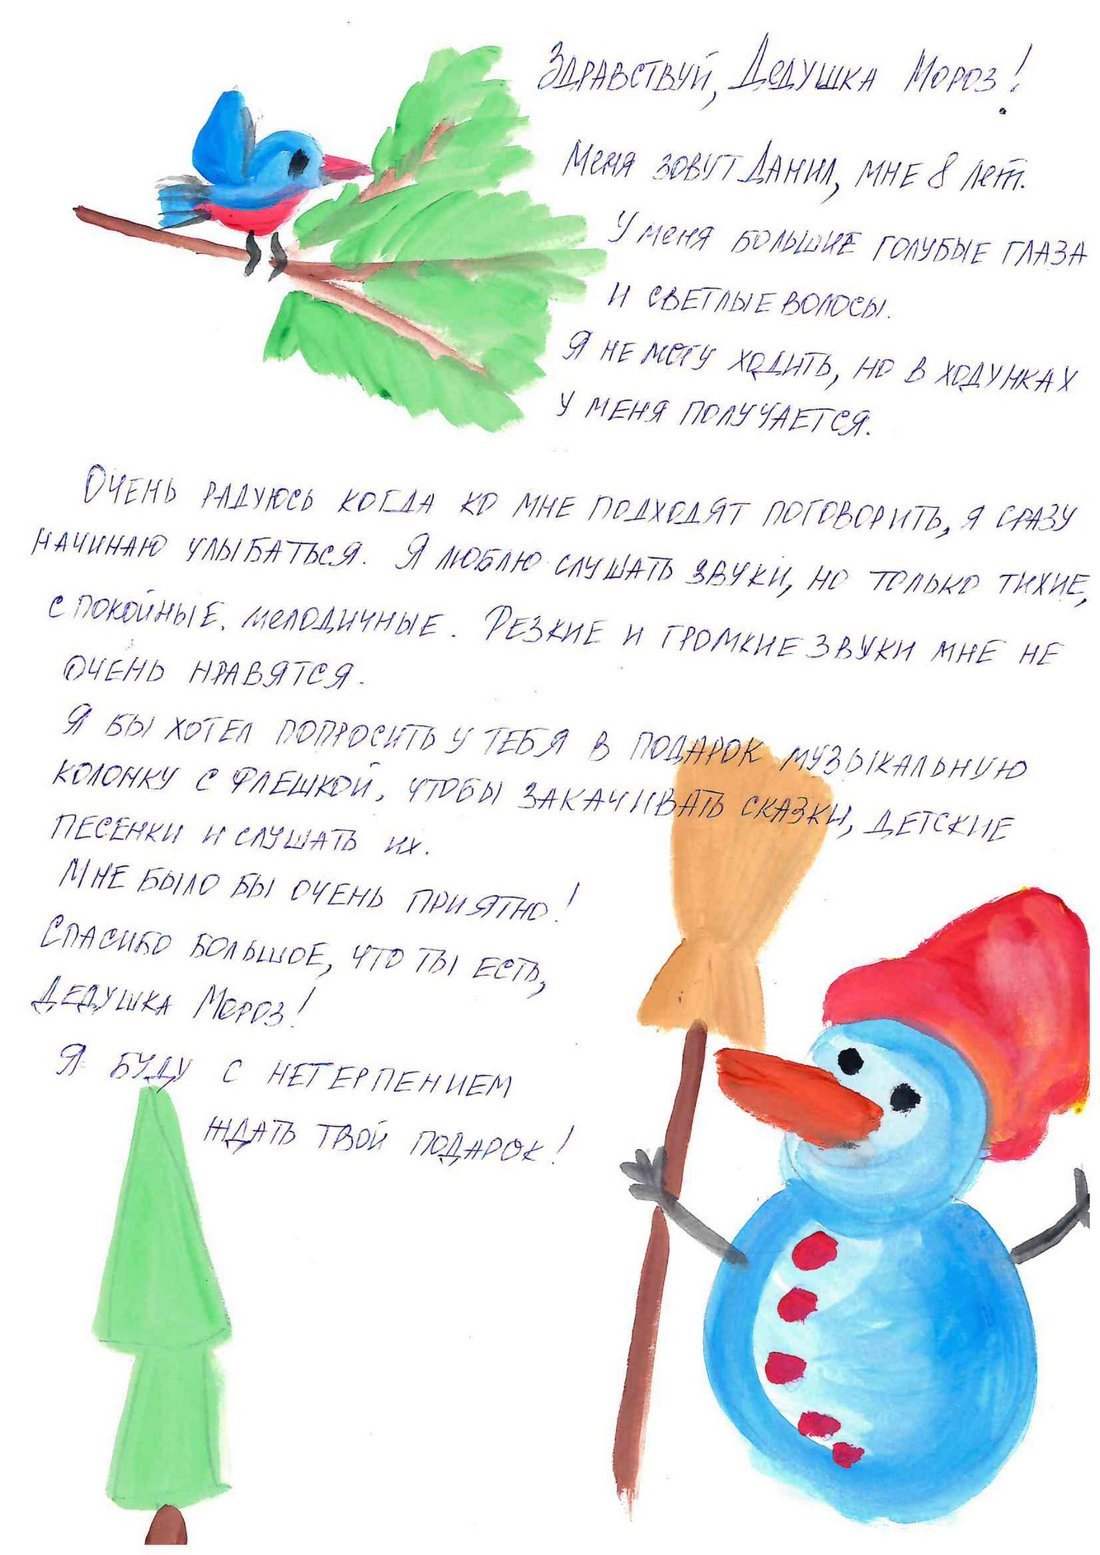 Здравствуй, Дедушка Мороз!
Меня зовут Данил, мне 8 лет.
У меня большие голубые глаза
и светлые волосы.
Я не могу ходить, но в ходунках
у меня получается.
Очень радуюсь когда ко мне подходят поговорить, я сразу
начинаю улыбаться. Я люблю слушать звуки, но только тихие,
спокойные. мелодичные. Резкие и громкие звуки мне не
очень нравятся.
Я бы хотел попросить у тебя в подарок музыкальную
колонку с флешкой, чтобы закачивать сказки, детские
песенки и слушать их.
Мне было бы очень приятно!
Спасибо большое, что ты есть,
Дедушка Мороз!
Я буду с нетерпением
ждать твой подарок!